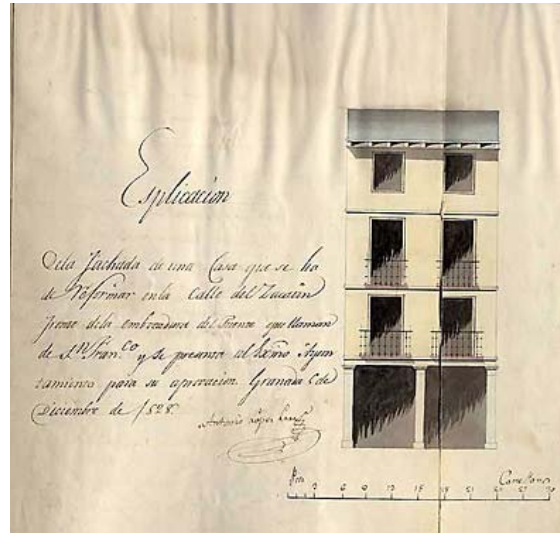 Esplicación
De la fachada de una Casa que se ha
de Reformar en la Calle del Zacatin
frente de la embocadura del Puente que llaman
de Sn. Franco. y se presenta al Exmo. Ayun
tamiento para su aprovación. Granada 6 de
Diciembre de 1828.
Antonio López
Pies Castellanos
3 6 9 12 15 18 21